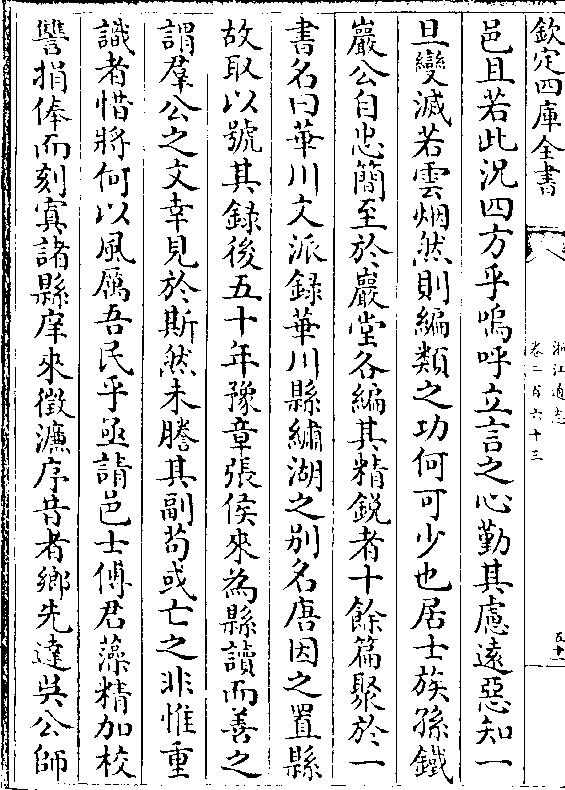 欽定四庫全書
浙江通志
卷二百六十三
五十一
邑且若此況四方乎嗚呼立言之心勤其慮遠惡知一
旦變滅若雲烟然則編類之功何可少也居士族孫鐵
巖公自忠簡至於巖堂各編其精鋭者十餘篇聚於一
書名曰華川文派録華川縣繡湖之别名唐因之置縣
故取以號其録後五十年豫章張侯來為縣讀而善之
謂羣公之文幸見於斯然未謄其副苟或亡之非惟重
識者惜將何以風厲吾民乎亟請邑士傅君藻精加校
讐捐俸而刻寘諸縣庠來徵濂序昔者鄉先達吳公師